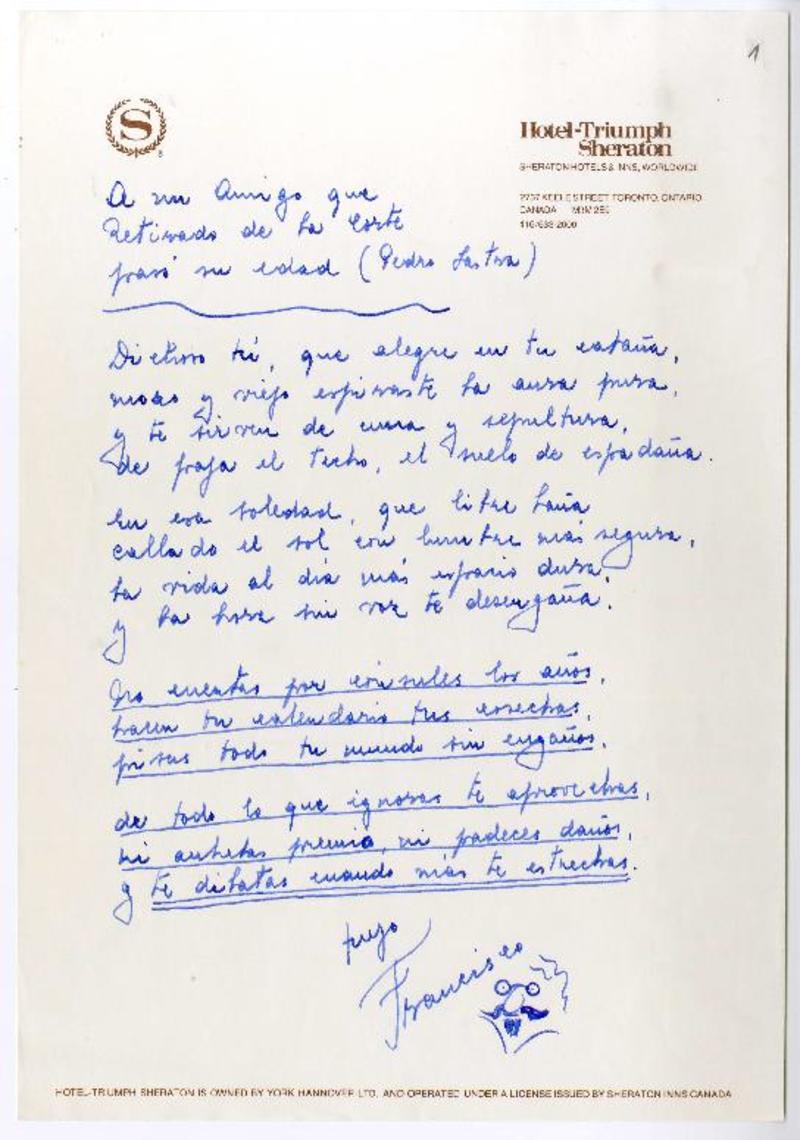 1
S
Hotel-Triumph
Sheraton
SHERATON HOTELS & INNS, WORLDWIDE
2737 KEELE STREET TORONTO, ONTARIO
CANADA M3M 2E9
416/633-2000
A un Amigo que
Retirado de la Corte
pasó su edad (Pedro Lastra)
Dichoso tú, que alegre en tu cabaña,
mozo y viejo espiraste la aura pura,
y te sirven de cuna y sepultura,
de paja el techo, el suelo de espadaña.
En esa soledad, que libre baña
callado el sol con lumbre más segura,
la vida al día más espacio dura,
y la hora sin voz te desengaña.
No cuentas por cónsules los años,
hacen tu calendario tus cosechas,
pisas todo tu mundo sin engaños.
de todo lo que ignoras te aprovechas,
ni anhelas premio, ni padeces daños,
y te dilatas cuando más te estrechas.
tuyo
Francisco
HOTEL-TRIUMPH SHERATON IS OWNED BY YORK HANNOVER LTD. AND OPERATED UNDER A LICENSE ISSUED BY SHERATON INNS CANADA